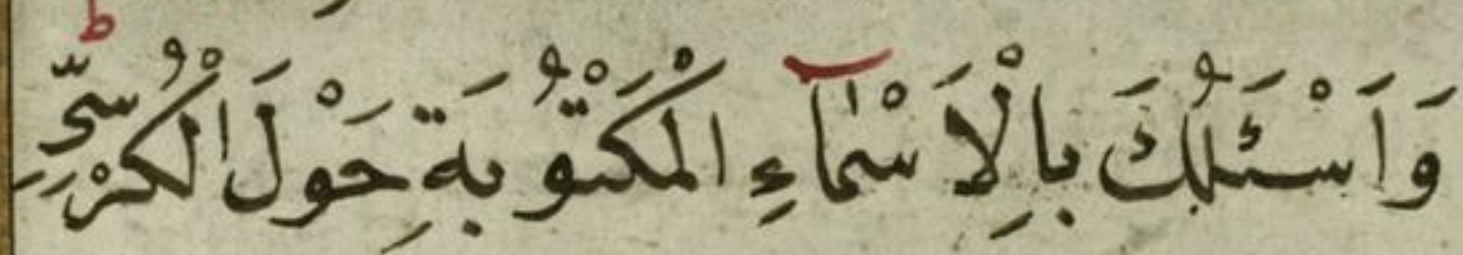 وَاَسْئَلُكَ بِالْاَسْمَآءِ الْمَكْتُوْبَةِ حَوْلَ الْكُرْسِيِّ ط